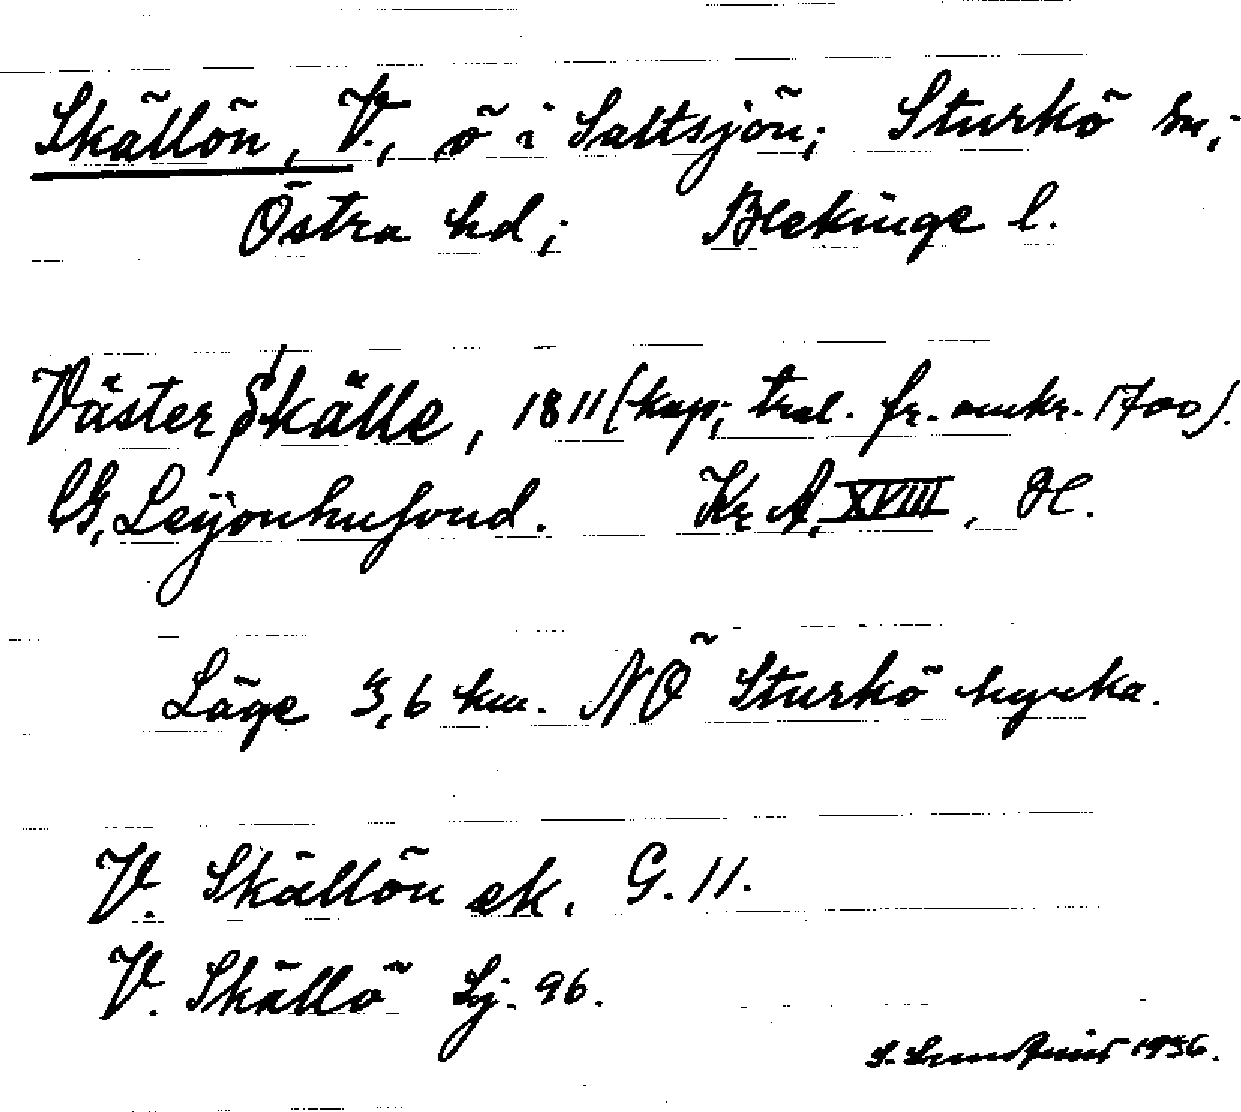 Skällön, V., ö i Saltsjön; Sturkö sn;
Östra hd; Blekinge l.
Väster Skälle, 1811 (kop; tral. fr. omkr. 1700).
G, Leijonhufvud. Kr A, XVIII, H.
Läge 3,6 km. NÖ Sturkö kyrka.
V. Skällön ek. G. 11.
V. Skällö Lj. 96.
1936.